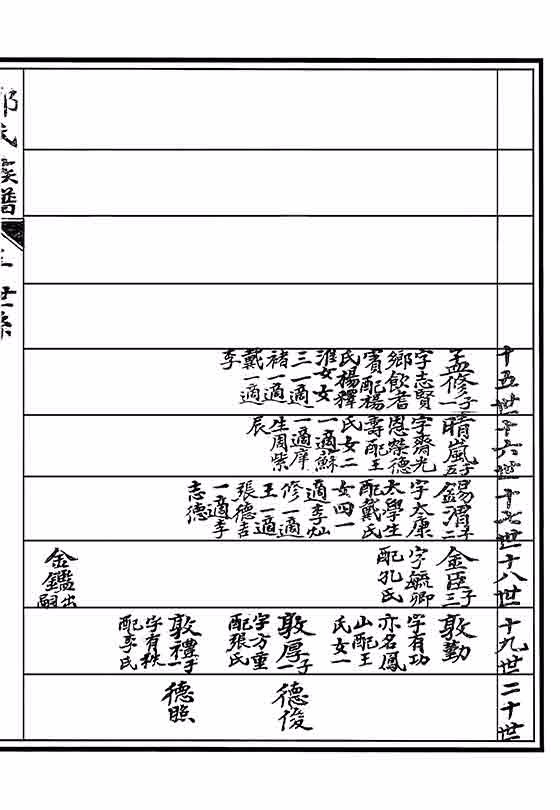 十五世
孟修子一
字志賢
鄉飲耆
賓配楊
氏楊釋
淮女女
三一適
褚一適
戴一適
李
十六世
晴嵐子五
字齋光
恩榮德
壽配王
氏女二
一適蘇
一適庠
生周紫
辰
十七世
錫渭子二
字太康
太學生
配戴氏
女四一
適李灿
修一適
王一適
張德吉
一適李
志德
十八世
金臣子三
字毓卿
配孔氏
金鑑出嗣
十九世
敦勤
字有功
亦名鳳
山配王
氏女一
敦厚子一
字方重
配張氏
敦禮子一
字有秩
配李氏
二十世
德俊
德照
氏族譜
世系